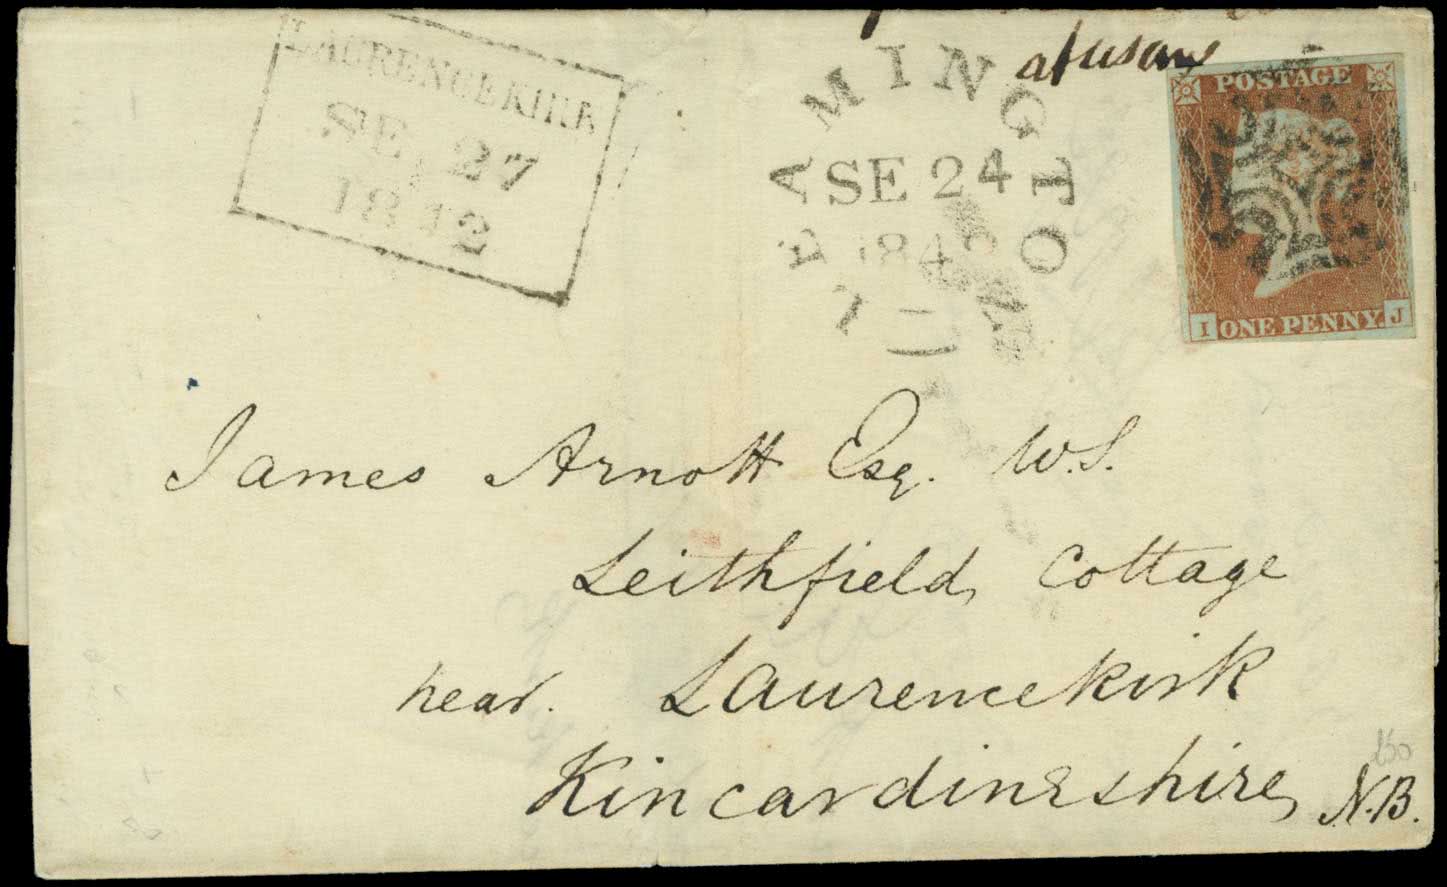 LAURENCEKIRK
SE 27
1842
LEAMINGTON
SE 24
1842
POSTAGE
I ONE PENNY. J
James Arnott Esq. W.S.
Leithfield Cottage
near. Laurencekirk
Kincardineshire, N.B.
160